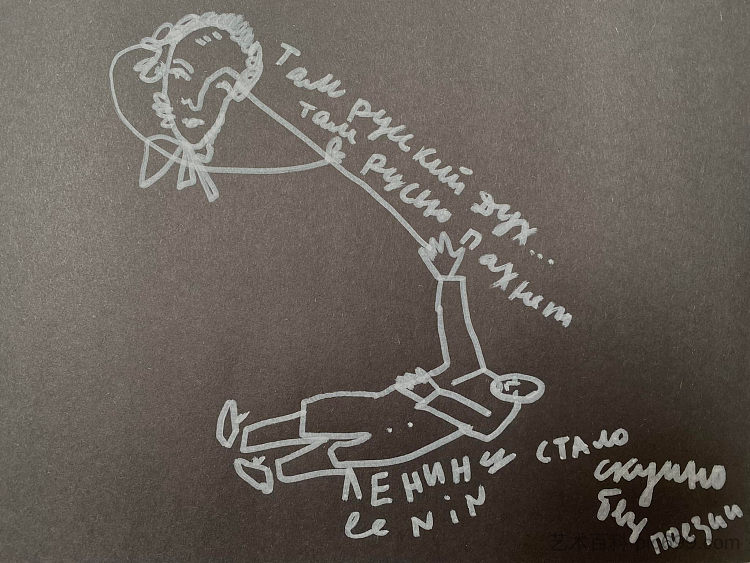 Там русский дух...
там русью пахнет
ЛЕНИНУ СТАЛО
скучно
без
поэзии
LeNiN